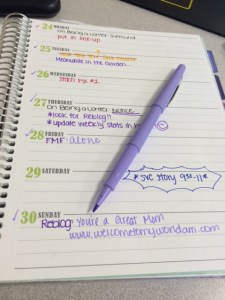 24 MONDAY
on Being a Writer
put in link-up
25 TUESDAY
Meanwhile in the Garden...
26 WEDNESDAY
27 THURSDAY
on Being a Writer
*look for Reblog!!
*update weekly stats in
28 FRIDAY
FMF-alone
29 SATURDAY
*SVC Story 9
30 SUNDAY
Reblog: You're a Great Mom
www.welcometomywondam.com